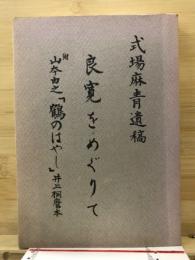 式場麻青遺稿
良寛をめぐりて
附 山本由之「鶴のはやし」井上桐麿本